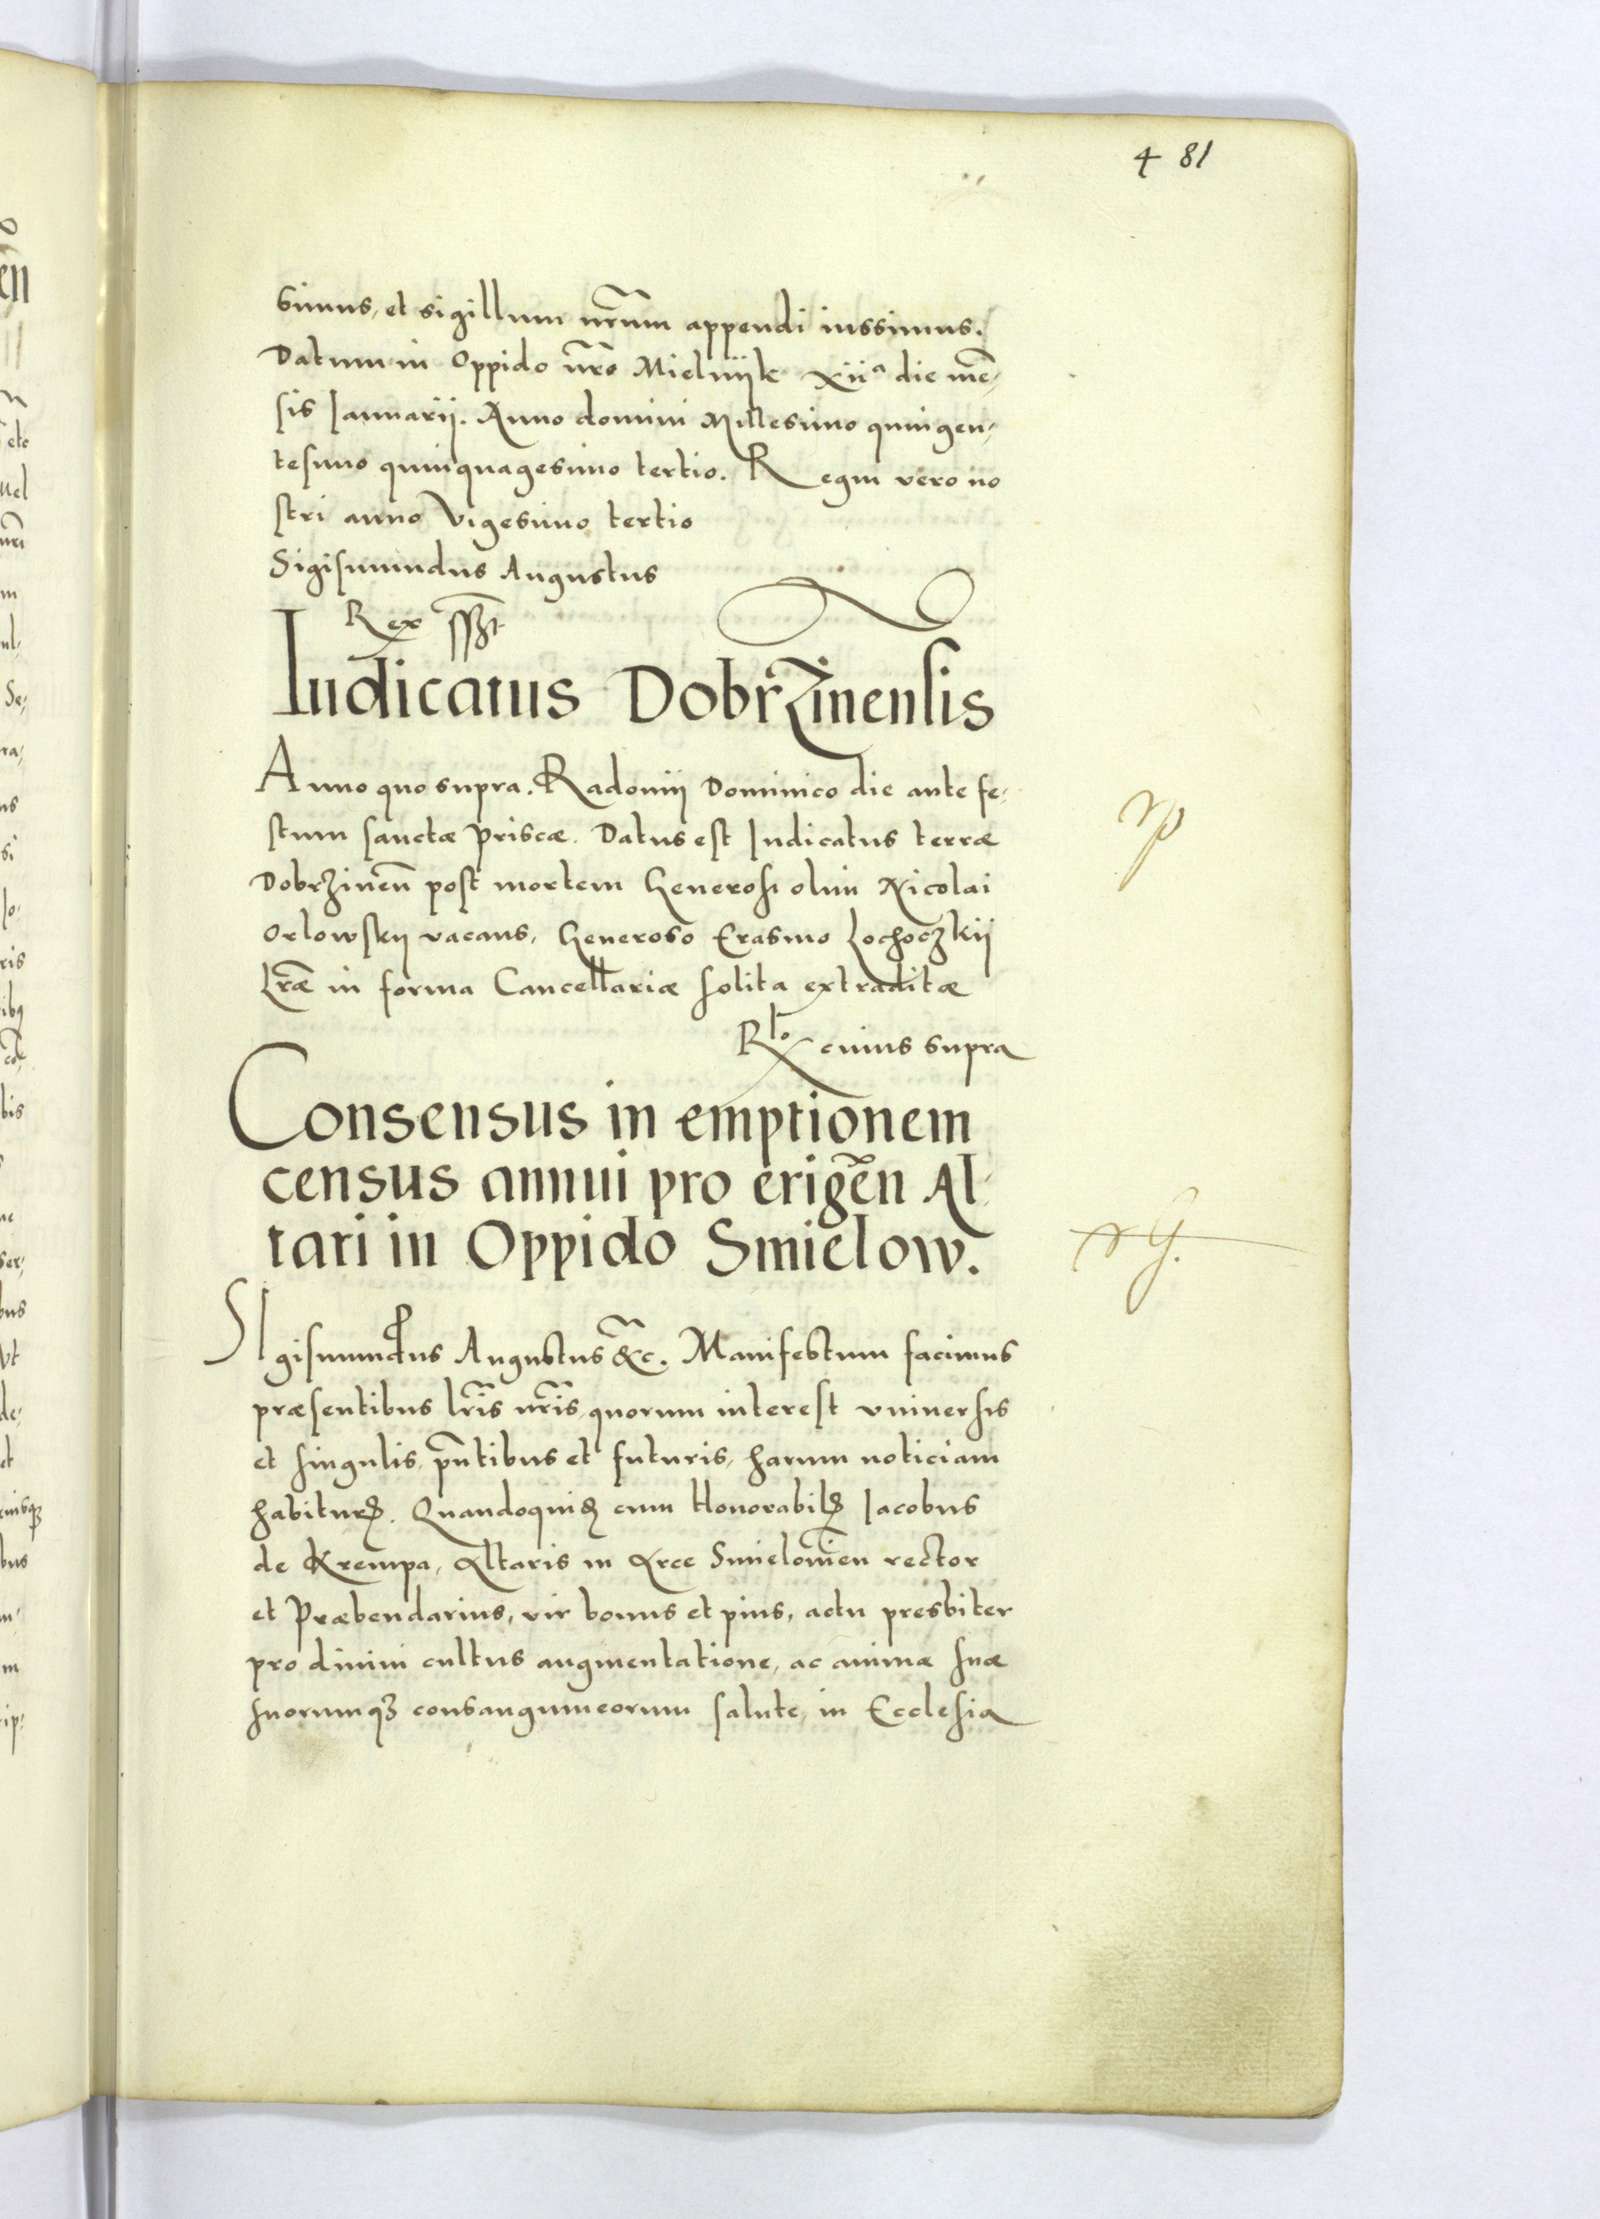 4 81
simus, et sigillum nr̃um appendi iussimus.
Datum in Oppido nr̃o Mielnijk xiiª die mē-
sis Januarij. Anno domini Millesimo quingen-
tesimo quinquagesimo tertio. Regni vero no
stri anno Vigesimo tertio
Sigismundus Augustus
Rex sszt
Iudicatus Dobrzinensis
Anno quo supra. Radomij Dominico die ante fe-
stum sanctæ Priscæ. Datus est Iudicatus terræ
Dobrzineñ post mortem Generosi olim Nicolai
Orlowskij vacans, Generoso Erasmo Lochoczkij
Lr̃æ in forma Cancellariæ solita extraditæ
Rlo cuius supra
Consensus in emptionem
census annui pro erigēn Al-
tari in Oppido Smielow.
Sigismundus Augustus &c̃. Manifestum facimus
præsentibus lr̃is nr̃is, quorum interest vniuersis
et singulis, pñtibus et futuris, harum noticiam
habiturꝭ. Quandoquiꝭ cum Honorabilꝭ Jacobus
de Krempa, Altaris in Arce Smieloviēn rector
et Præbendarius, vir bonus et pius, actu presbiter
pro diuini cultus augmentatione, ac animæ suæ
suorumqꝫ consanguineorum salute, in Ecclesia